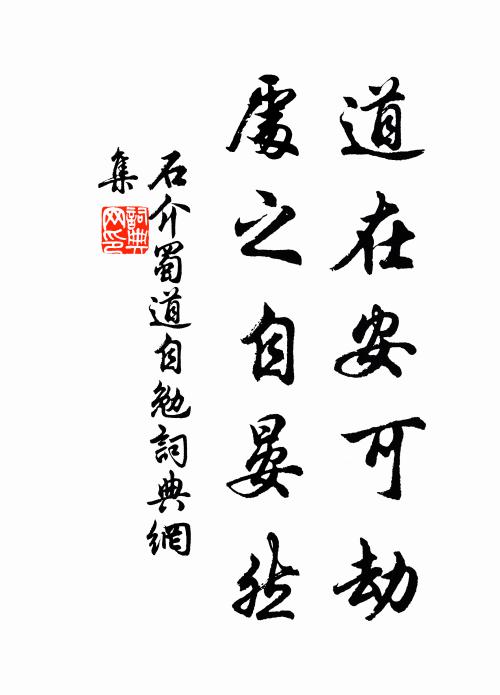 道在安可劫
處之自晏然
石介蜀道自勉詞典網
集
詞典
网印